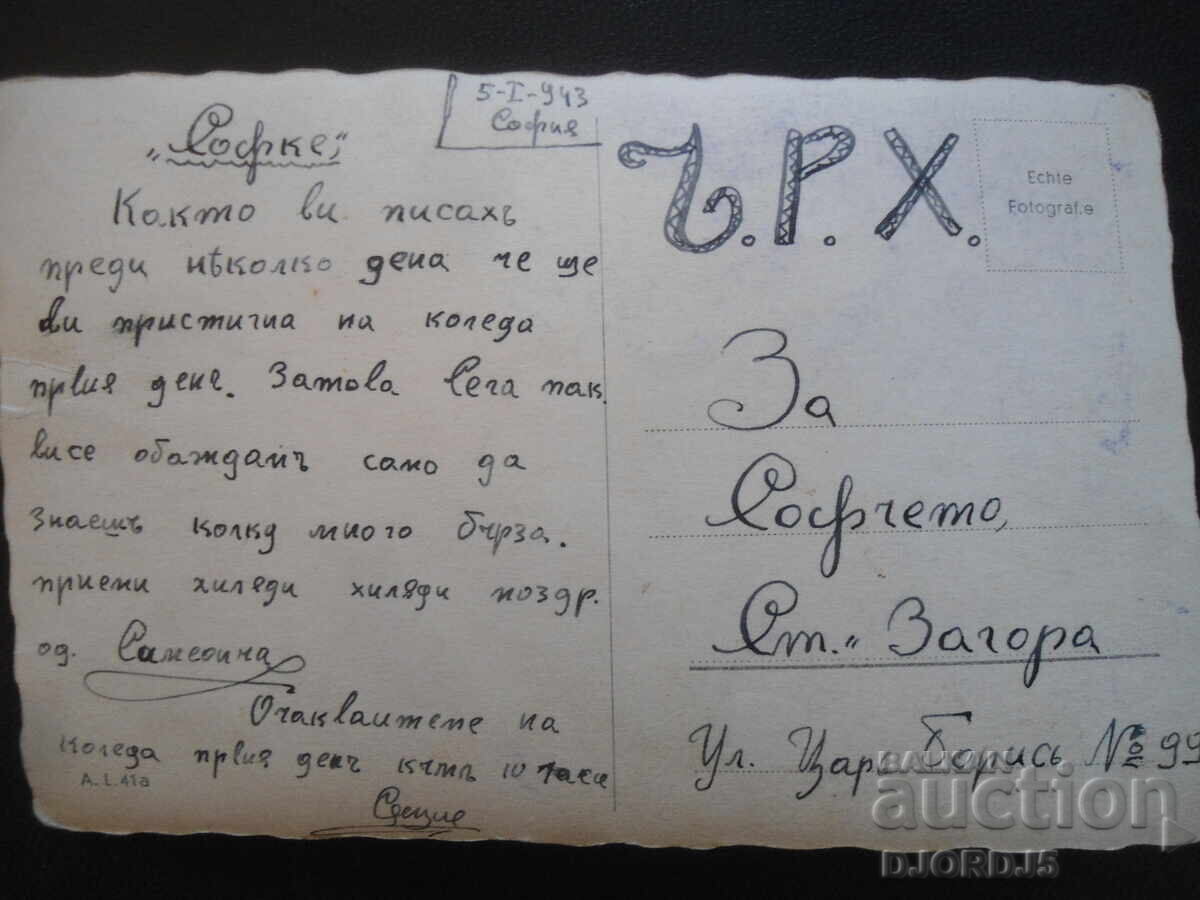 5-I-943
София
„Софке"
Както ви писахъ
преди нѣколко дена че ще
ви пристигна на коледа
првия денъ. Затова Сега пак
висе обаждамъ само да
знаешъ колко много бърза.
приеми хиляди хиляди поздр.
од.
Очаквайтене на
коледа првия денъ къмъ 10 часа
A.L.41a
Ч.Р.Х.
Echte
Fotografie
За
Софчето,
Ст." Загора
Ул. Царъ Борисъ № 99
BALKAN
auction
DJORDJ5